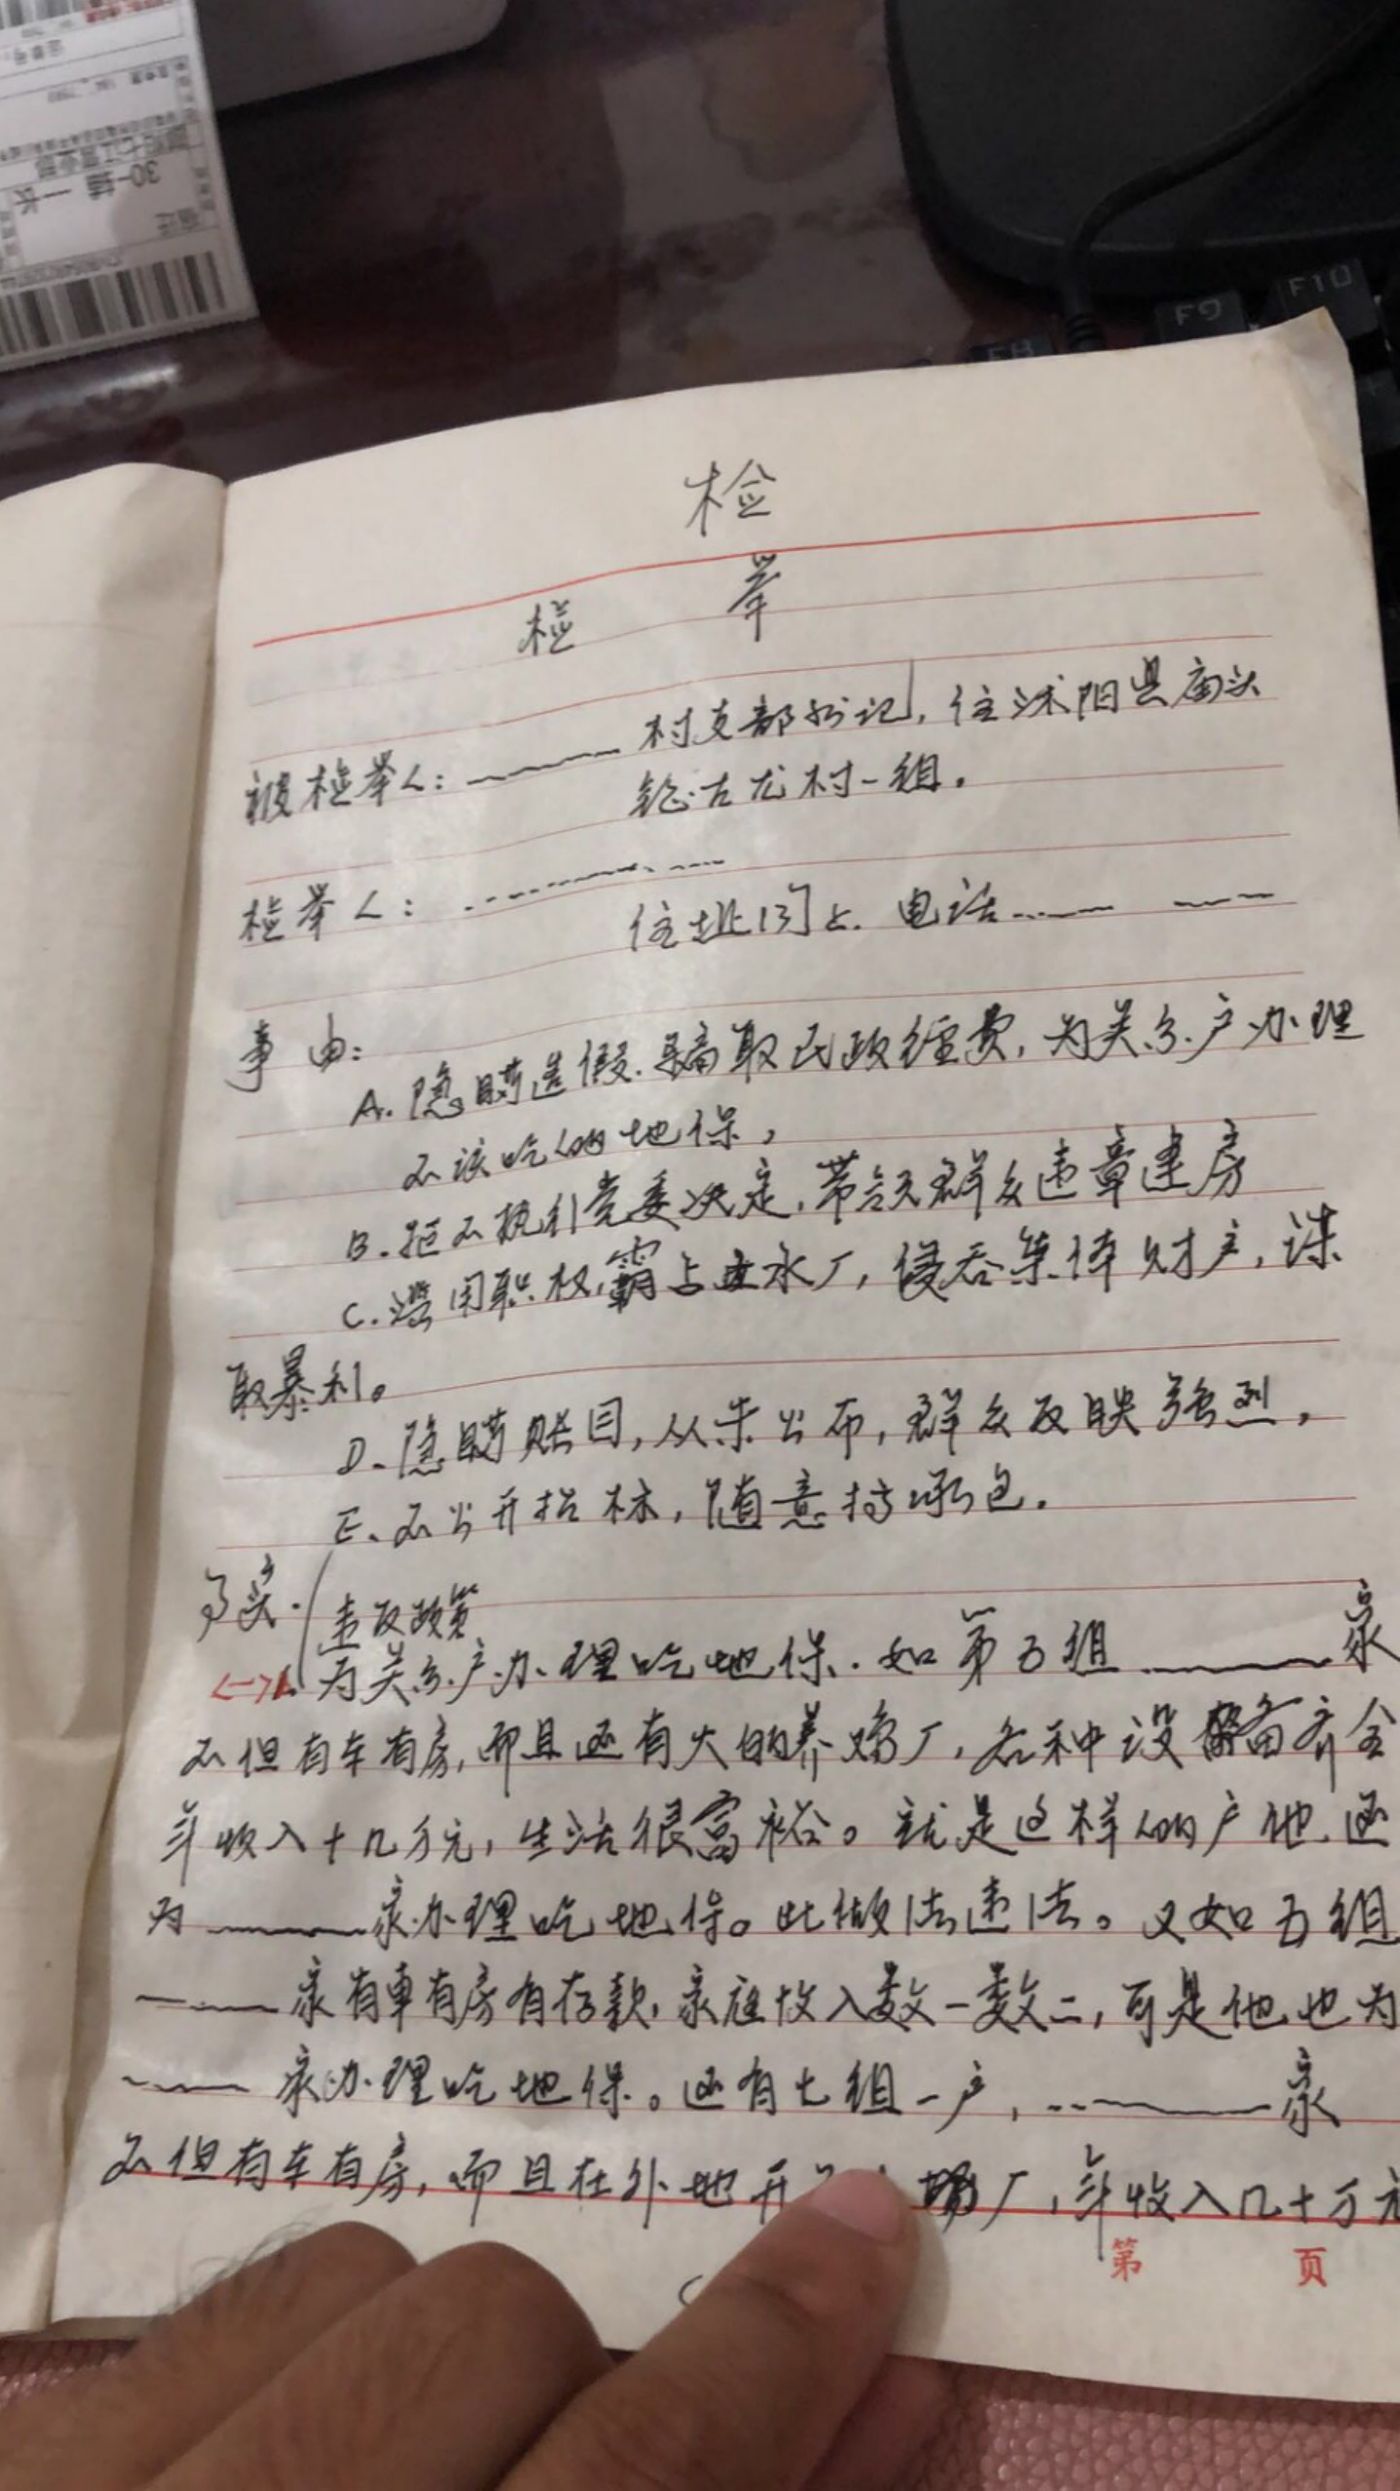 F9
F10
F8
检
检 举
被检举人: 村支部书记, 住沭阳县庙头
镇古龙村一组.
检举人:
住址同上. 电话
事由:
A. 隐瞒造假. 骗取民政经费, 为关系户办理
不该吃的地保,
B. 拒不执行党委决定, 带领群众违章建房
C. 滥用职权, 霸占水厂, 侵吞集体财产, 谋
取暴利。
D. 隐瞒账目, 从未公布, 群众反映强烈,
E. 不公开招标, 随意搞承包.
事实.
违反政策
<一>1. 为关系户办理吃地保. 如第五组 家
不但有车有房, 而且还有大的养鸡厂, 各种设备齐全
年收入十几万元, 生活很富裕。就是这样的户他还
为 家办理吃地保。此做法违法。又如五组
家有車有房有存款, 家庭收入数一数二, 可是他也为
家办理吃地保。还有七组一户, 家
不但有车有房, 而且在外地开 厂, 年收入几十万元
第 页